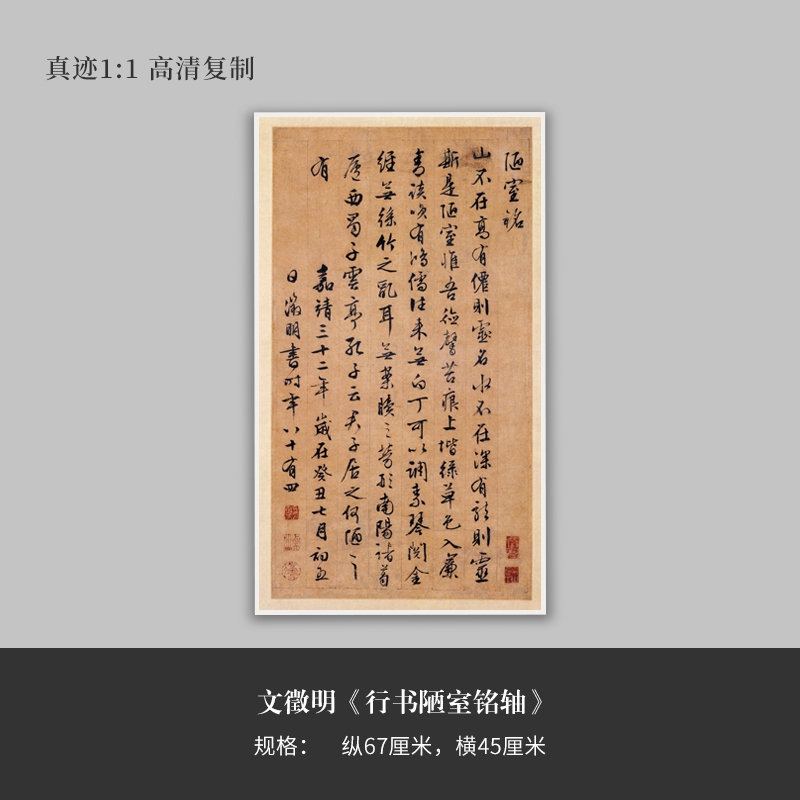 真迹1:1 高清复制
陋室铭
山不在高有僊则灵名水不在深有龙则灵
斯是陋室惟吾德馨苔痕上堦绿草色入簾
青谈咲有鸿儒往来无白丁可以调素琴阅金
经无丝竹之乱耳无案牍之劳形南阳诸葛
庐西蜀子云亭孔子云夫子居之何陋之
有
嘉靖三十二年岁在癸丑七月初五
日徵明书时年八十有四
文徵明《行书陋室铭轴》
规格： 纵67厘米，横45厘米